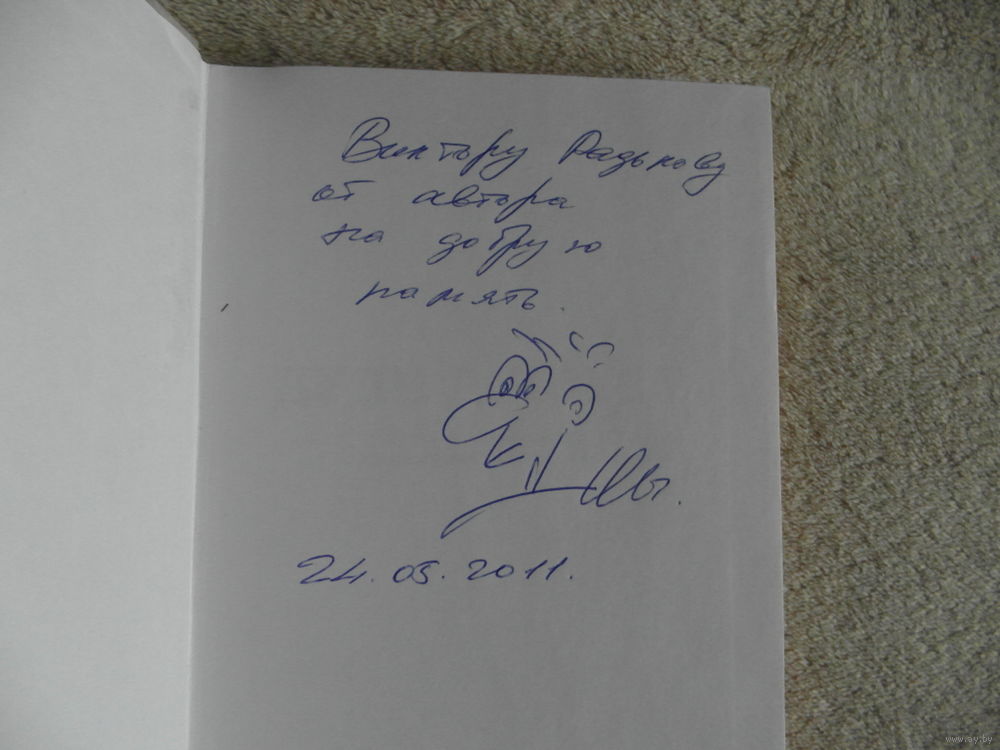 Виктору Радькову
от автора
на добрую
память.
24.05.2011.
www.ay.by